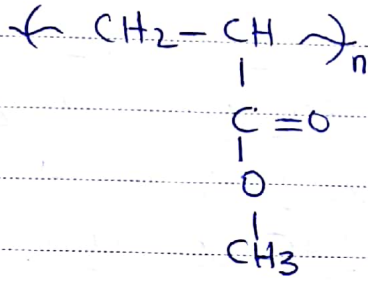 ( CH2 – CH )n
C = O
O
CH3